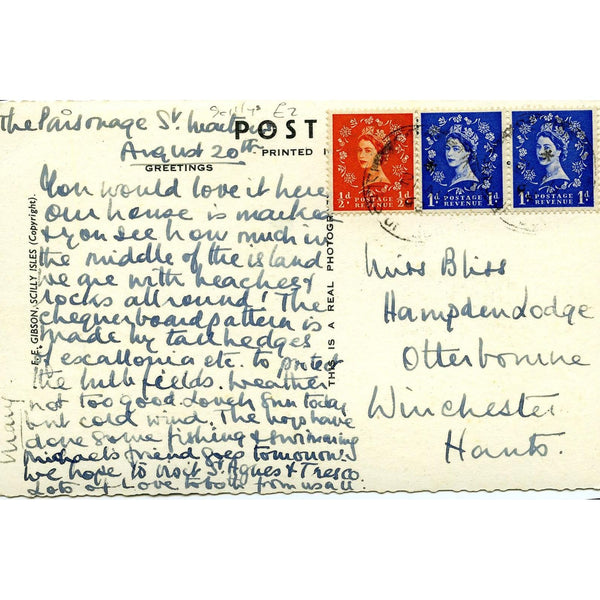 The Parsonage St. Martins
August 20th
POST
PRINTED I
GREETINGS
½d POSTAGE REVENUE ½d
1d POSTAGE REVENUE 1d
1d POSTAGE REVENUE 1d
You would love it here
Our house is marked
& you see how much in
the middle of the island
we are with beaches &
rocks all round! The
chequerboard pattern is
made by tall hedges
of escallonia etc. to protect
the bulb fields. Weather
not too good. Sun today
but cold wind. The boys have
done some fishing & swimming
Michael's friend goes tomorrow.
We hope to visit St. Agnes & Tresco.
Lots of love to both from us all
Mary
F. E. GIBSON, SCILLY ISLES (Copyright).
THIS IS A REAL PHOTOGR
Miss Bliss
Hampden Lodge
Otterbourne
Winchester
Hants.
£2